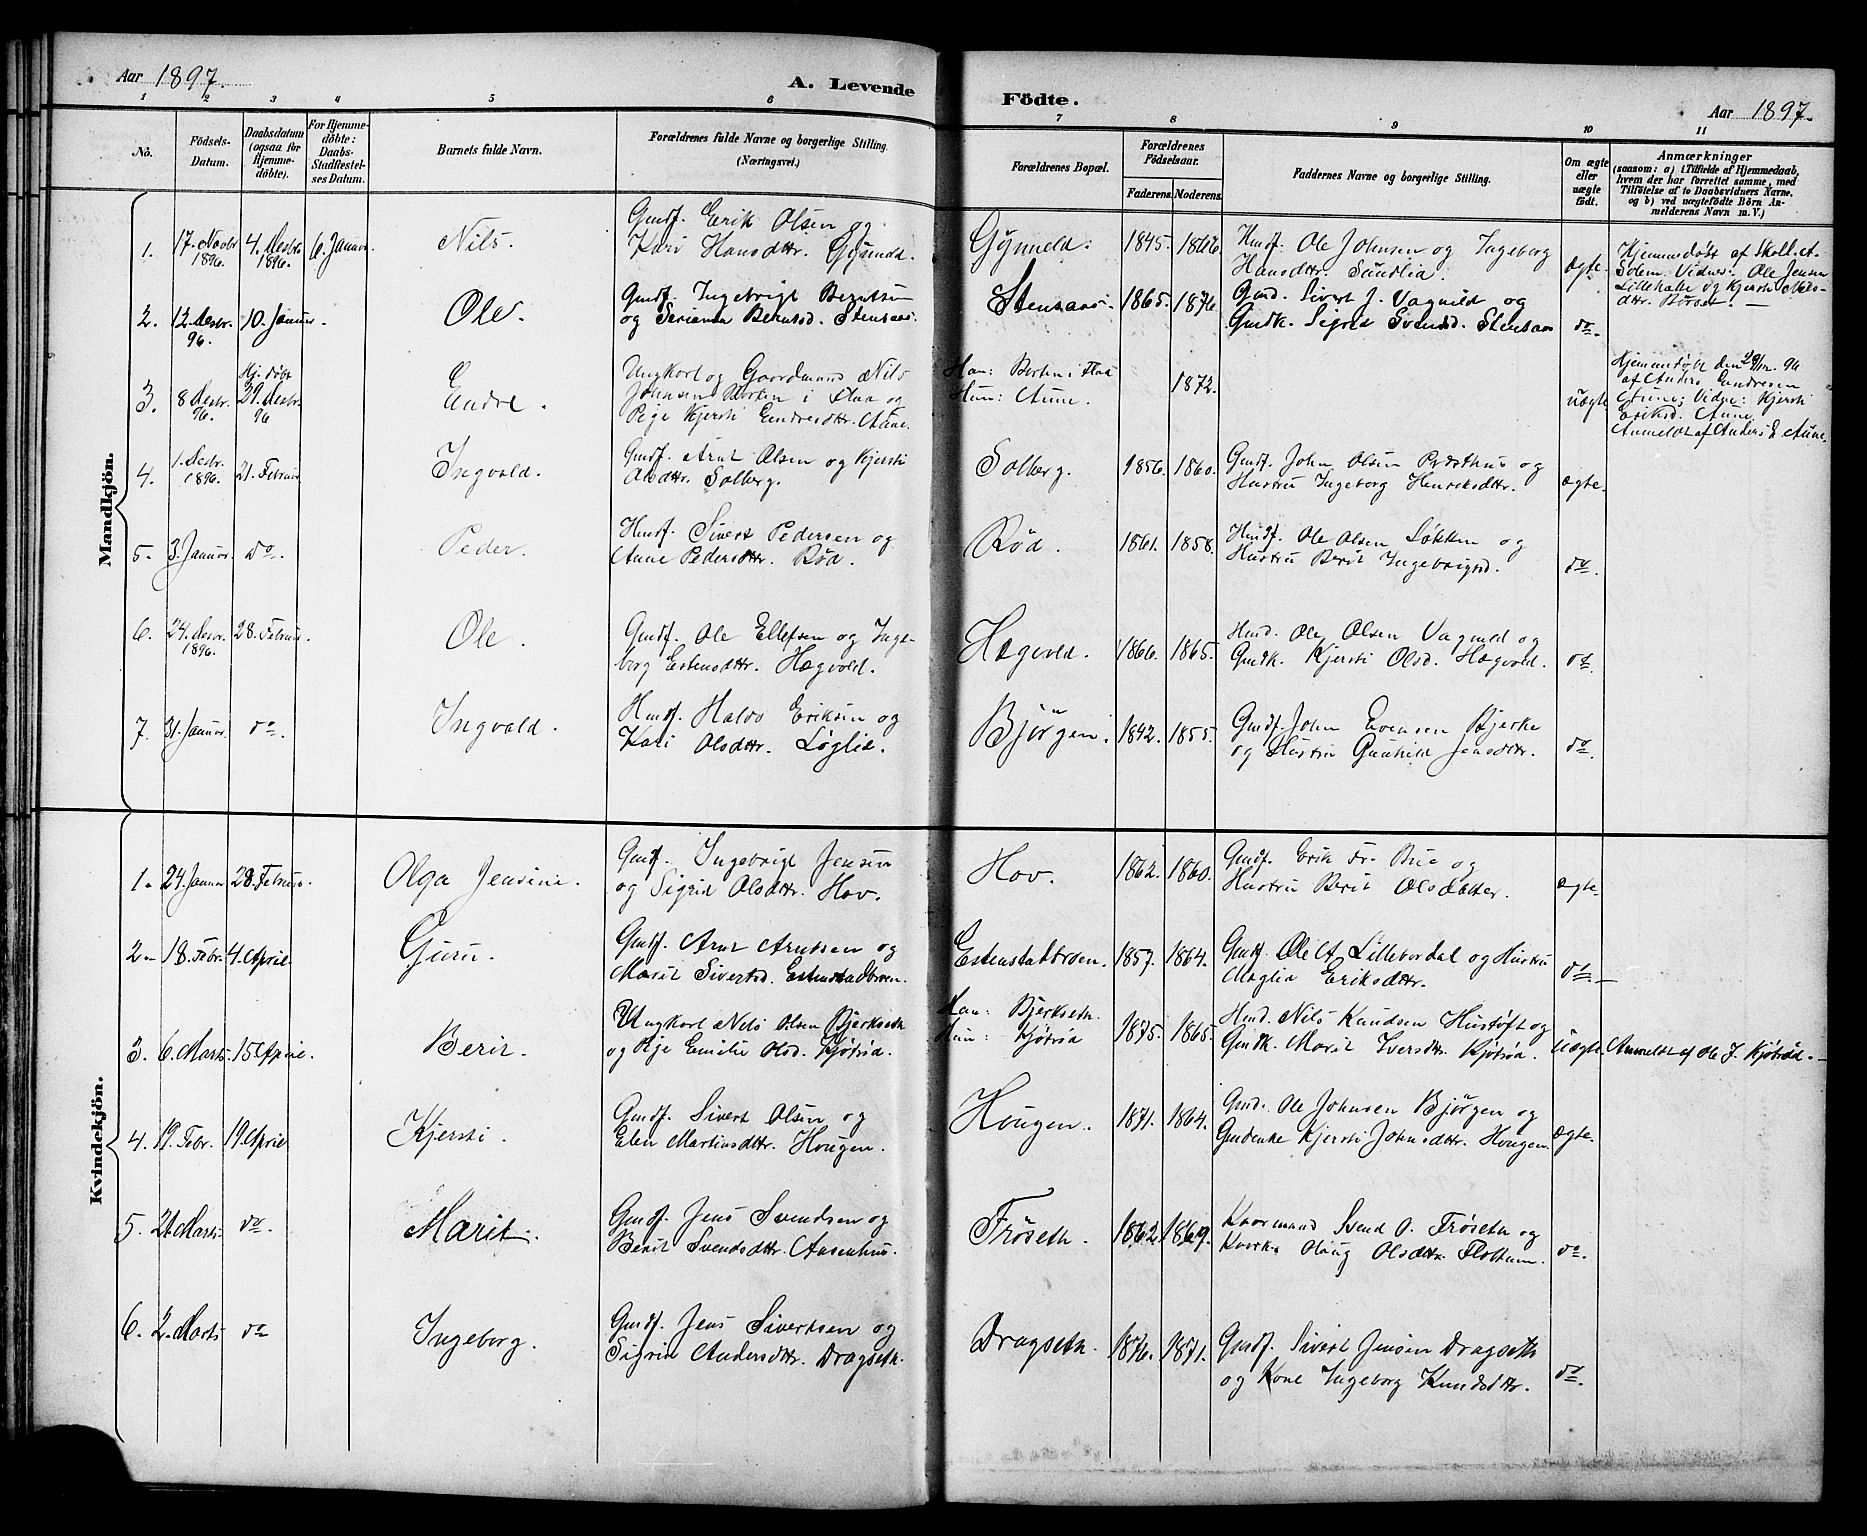 Aar 1897.
A. Levende
Födte.
Aar 1897.
1 2 3 4 5 6 7 8 9 10 11
No.
Födsels-
Datum.
Daabsdatum
(ogsaa for
Hjemme-
döbte).
For Hjemme-
döbte:
Daabs-
Stadfæstel-
ses Datum.
Barnets fulde Navn.
Forældrenes fulde Navne og borgerlige Stilling.
(Næringsvei.)
Forældrenes Bopæl.
Forældrenes
Födselsaar.
Faderens.
Moderens.
Faddernes Navne og borgerlige Stilling.
Om ægte
eller
uægte
födt.
Anmærkninger
(saasom: a) i Tilfælde af Hjemmedaab,
hvem der har forrettet samme, med
Tilföielse af to Daabsvidners Navne,
og b) ved uægtefödte Börn An-
melderens Navn m. V.)
Mandkjön.
1. 17. Novbr 1896. 4. Desbr. 1896. 6. Januar.
Nils.
Gmdf. Erik Olsen og
Kari Hansdttr. Gynnild.
Gynnild. 1845. 1866.
Hmdf. Ole Johnsen og Ingeborg
Hansdttr. Sundlia.
ægte.
Hjemmedøbt af Skoll. A.
Solem. Vidner: Ole Jensen
Lillehale og Kjersti Nils-
dttr. Borset. —
2. 12. Desbr. 96. 10. Januar.
Ole.
Gmdf. Ingebrigt Berntsen
og Serianna Berntsd. Stensaas.
Stensaas. 1865. 1876.
Gmd. Sivert J. Vagnild og
Gmdk. Sigrid Svendsd. Stensaas
do.
3. 8 Desbr. 96. Hj. døbt 29. Desbr. 96
Endre.
Ungkarl og Gaardmand Nils
Johnsen Borten i Flaa og
Pige Kjersti Endresdttr. Aune.
Han: Borten i Flaa
Hun: Aune.
1872.
uægte
Hjemmedøbt den 29/12 96
af Anders Endresen
Aune; Vidne: Kjersti
Eriksd. Aune.
Anmeldt af Anders E. Aune.
4. 1. Desbr. 1896. 21. Februar.
Ingvald.
Gmdf. Arnt Olsen og Kjersti
Olsdttr. Solberg.
Solberg. 1856. 1860.
Gmdf. John Olsen Præsthus og
Hustru Ingeborg Henriksdttr.
ægte.
5. 3. Januar. do.
Peder.
Hmdf. Sivert Pedersen og
Anne Pedersdttr. Rød.
Rød. 1861. 1858.
Husf. Ole Olsen Løkken og
Hustru Berit Ingebrigtsd.
do.
6. 24. Desbr. 1896. 28. Februar.
Ole.
Gmdf. Ole Ellefsen og Inge-
borg Estensdttr. Hægvold.
Hægvold. 1866. 1865.
Hmd. Ole Olsen Vagnild og
Gmdk. Kjersti Olsd. Hægvold.
do.
7. 31. Januar. do.
Ingvald.
Hmdf. Haldo Eriksen og
Kari Olsdttr. Løglie.
Bjørgen. 1842. 1855.
Gmdf. John Evensen Bjerke
og Hustru Gunhild Jensdttr.
do.
Kvindekjön.
1. 24. Januar 28. Februar.
Olga Jensine.
Gmdf. Ingebrigt Jensen
og Sigrid Olsdttr. Hov.
Hov. 1862. 1860.
Gmdf. Erik Fr. Bue og
Hustru Berit Olsdatter.
ægte.
2. 18. Febr. 4. April.
Guru.
Gmdf. Arnt Arntsen og
Marit Sivertsd. Estenstadbroen.
Estenstadbroen. 1857. 1864.
Gmdf. Ole A. Lillebordal og Hustru
Maglia Eriksdttr.
do. —
3. 6. Marts. 15 April.
Berit.
Ungkarl Nils Olsen Bjerkseth
og Pige Emilie Olsd. Kjøtrød.
Han: Bjerkseth.
Hun: Kjøtrød
1875. 1865.
Hmd. Nils Knudsen Hustoft og
Gmdk. Marit Iversdttr. Kjøtrød.
Uægte.
Anmeldt af Ole J. Kjøtrød. —
4. 19. Febr. 19. April
Kjersti.
Gmdf. Sivert Olsen og
Elen Martinusdttr. Hougen.
Hougen. 1871. 1864.
Gmd. Ole Johnsen Bjørgen og
Gmdenke Kjersti Johnsdttr. Hougen.
ægte.
5. 21. Marts. do.
Marit.
Gmdf. Jens Svendsen og
Berit Svendsdttr. Aasenhus.
Frøseth. 1862. 1869.
Kaarmand Svend O. Frøseth og
Kaark. Olsdttr. Flottum.
do.
6. 2. Marts do
Ingeborg.
Gmdf. Jens Sivertsen og
Sigrid Andersdttr. Dragseth.
Dragseth. 1876. 1871.
Gmdf. Sivert Jensen Dragseth
og Kone Ingeborg Knudsdttr.
do.